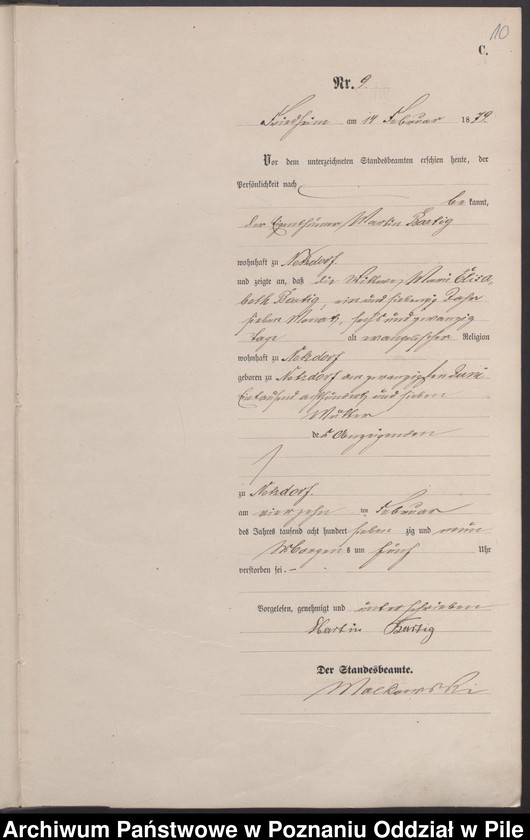 10
C.
Nr. 9.
Friedheim am 14 Februar 1879.
Vor dem unterzeichneten Standesbeamten erschien heute, der
Persönlichkeit nach
be kannt,
der Eigenthümer Martin Bartig
wohnhaft zu Netzdorf
und zeigte an, daß die Wittwe, Marie Elisa-
beth Bartig, ein und siebenzig Jahr
sieben Monat, sechs und zwanzig
Tage alt evangelischer Religion
wohnhaft zu Netzdorf
geboren zu Netzdorf am zwanzigsten Juni
Eintausend achthundert und sieben
Mutter
des Anzeigenden
zu Netzdorf.
am vierzehn ten Februar
des Jahres tausend acht hundert sieben zig und neun
Morgens um fünf Uhr
verstorben sei.—
Vorgelesen, genehmigt und unterschrieben
Martin Bartig
Der Standesbeamte.
Malkowski
Archiwum Państwowe w Poznaniu Oddział w Pile